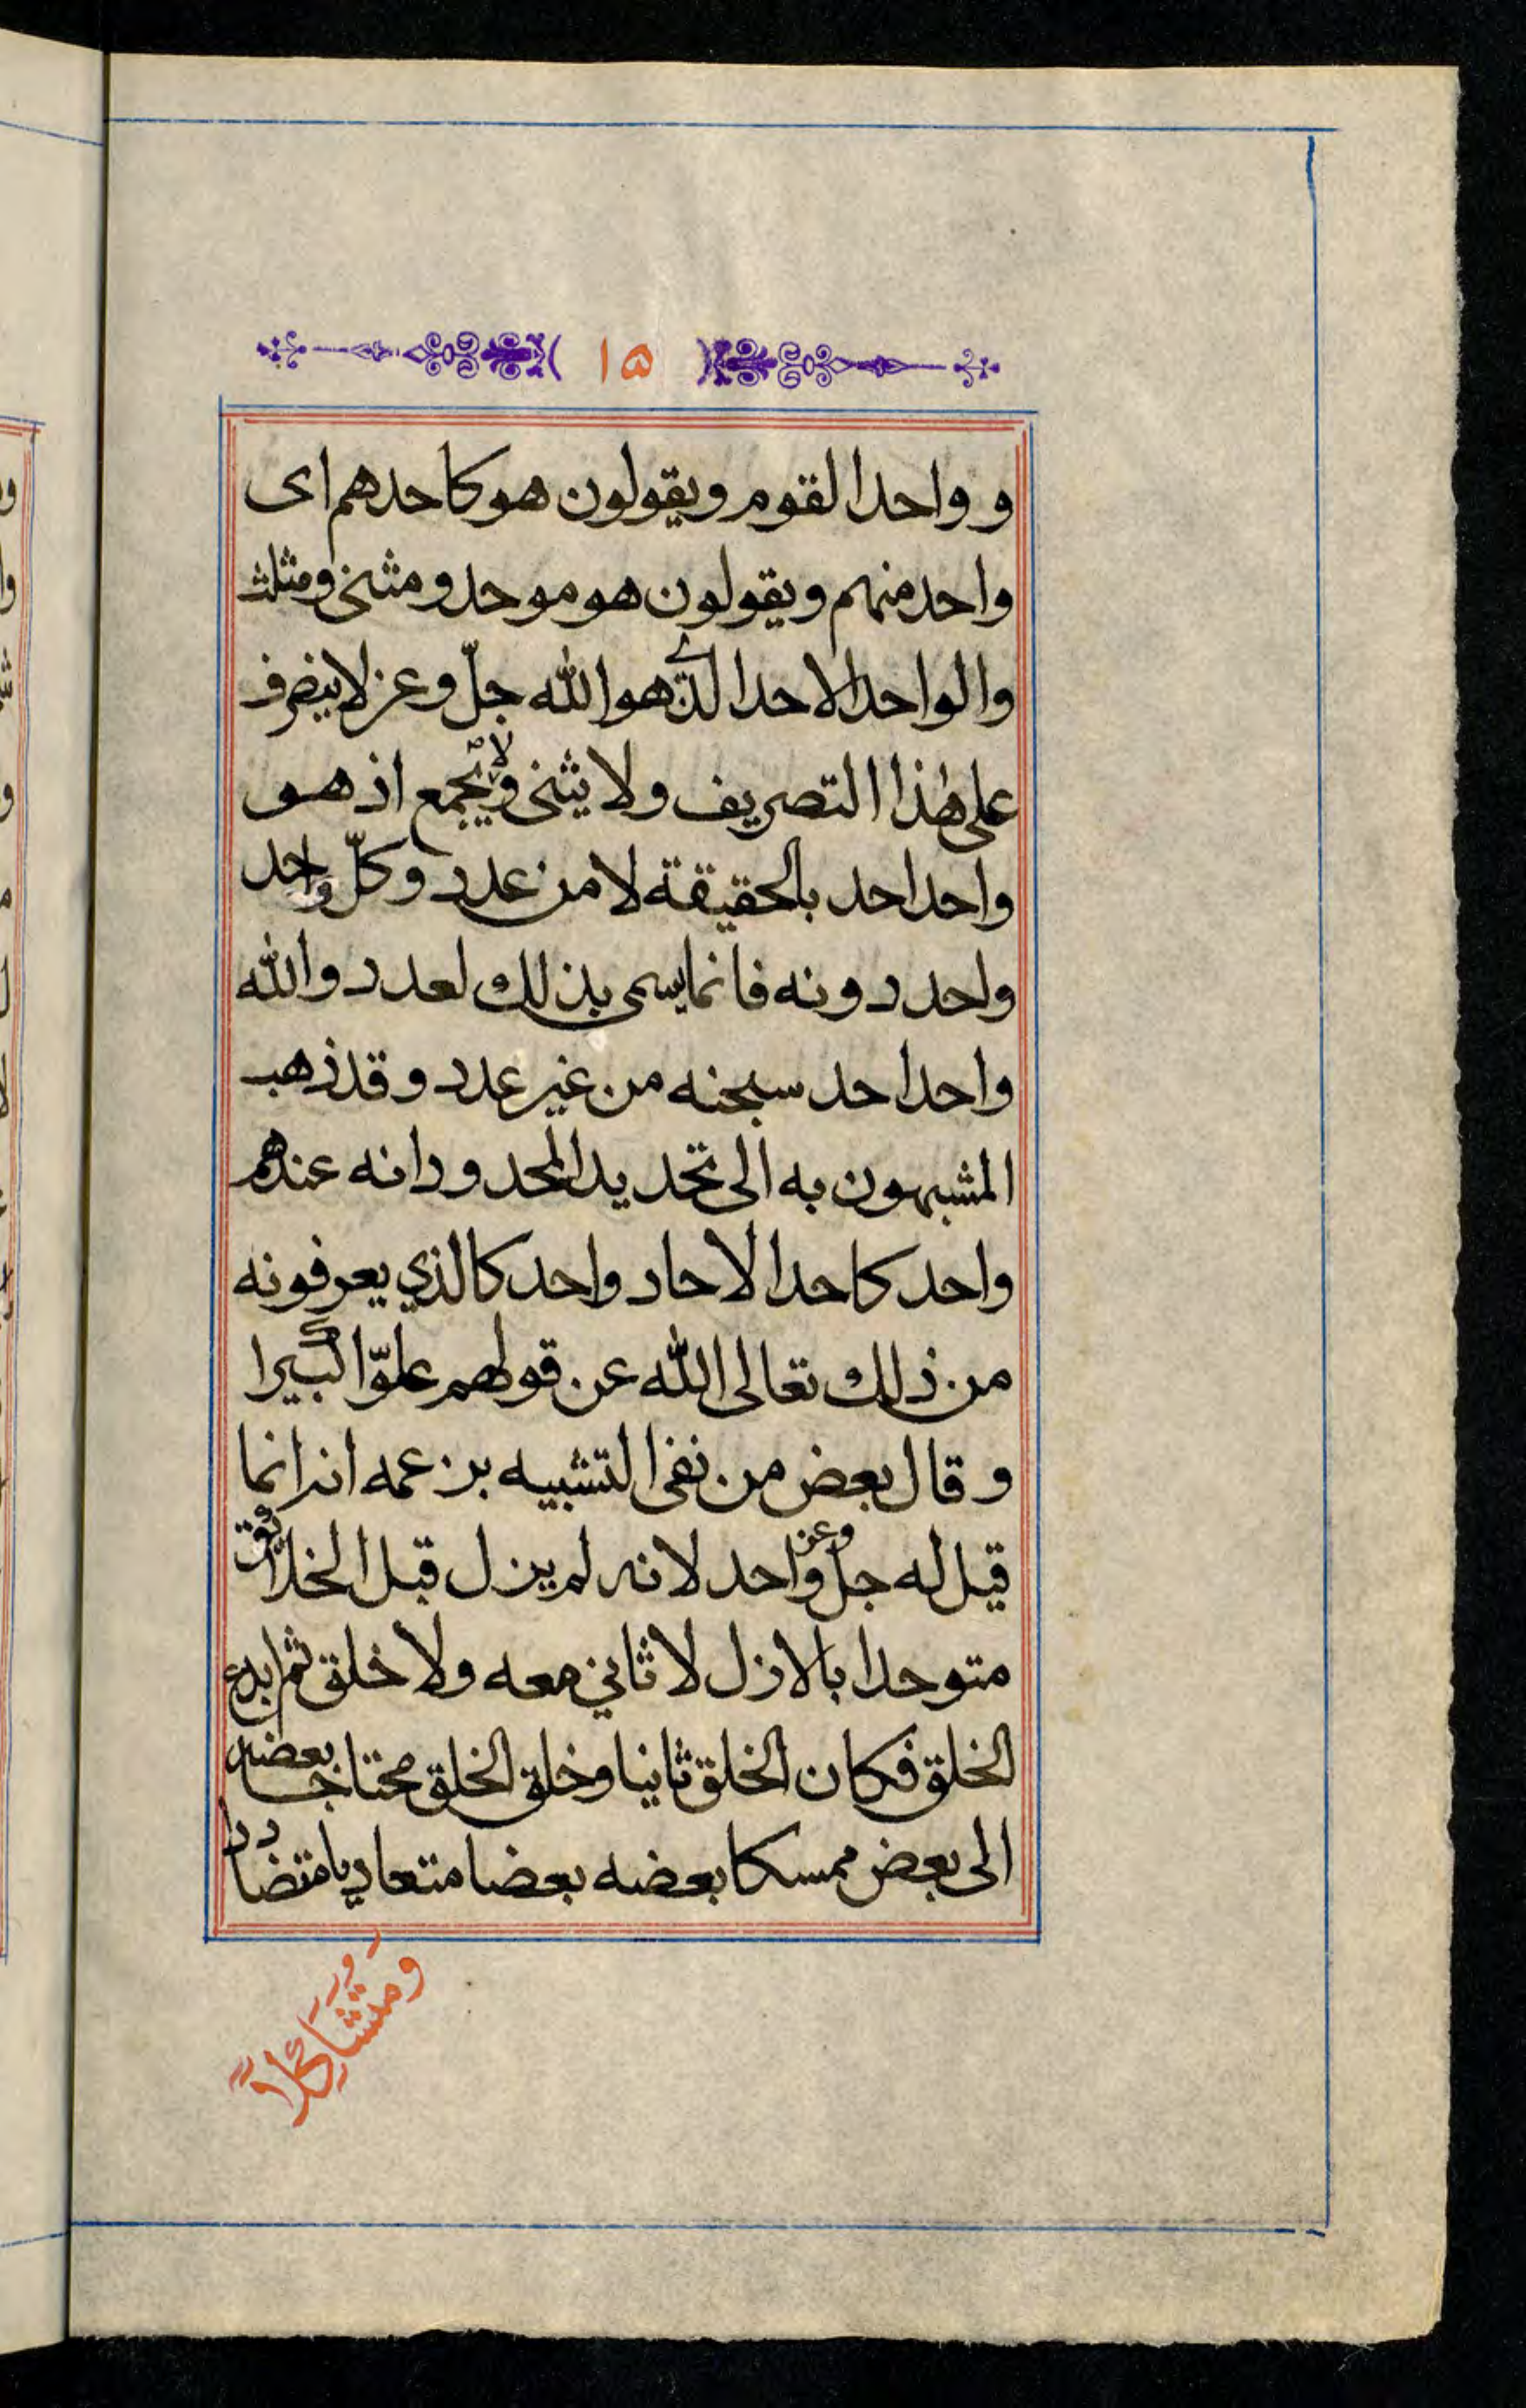 ١٥
و واحد القوم ويقولون هو كاحدهم اى
واحد منهم ويقولون هو موحد ومثنى ومثلث
والواحد الاحد الذي هو الله جلّ وعز لا يتصرف
على هٰذا التصريف ولا يثنى ولا يجمع اذ هو
واحد احد بالحقيقة لا من عدد وكلّ واحد
واحد دونه فانما يسمى بذلك لعدد والله
واحد احد سبحنه من غير عدد وقد ذهب
المشبهون به الى تحديد المحدود انه عندهم
واحد كاحد الاحاد واحد كالذي يعرفونه
من ذلك تعالى الله عن قولهم علوّا كبيرا
وقال بعض من نفى التشبيه بزعمه انه انما
قيل له جل وعز واحد لانه لم يزل قبل الخلائق
متوحدا بالازل لا ثاني معه ولا خلق ثم ابدع
الخلق فكان الخلق ثانيا وخلق الخلق محتاجا بعضه
الى بعض ممسكا بعضه بعضا متعاديا متضاددا
وَمُتَشَاكِلًا